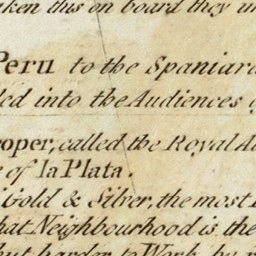 ken this on board they
Peru to the Spaniar
led into the Audiences
roper, called the Royal A
of la Plata.
Gold & Silver, the most
hat Neighbourhood is the
but harder to Work, by